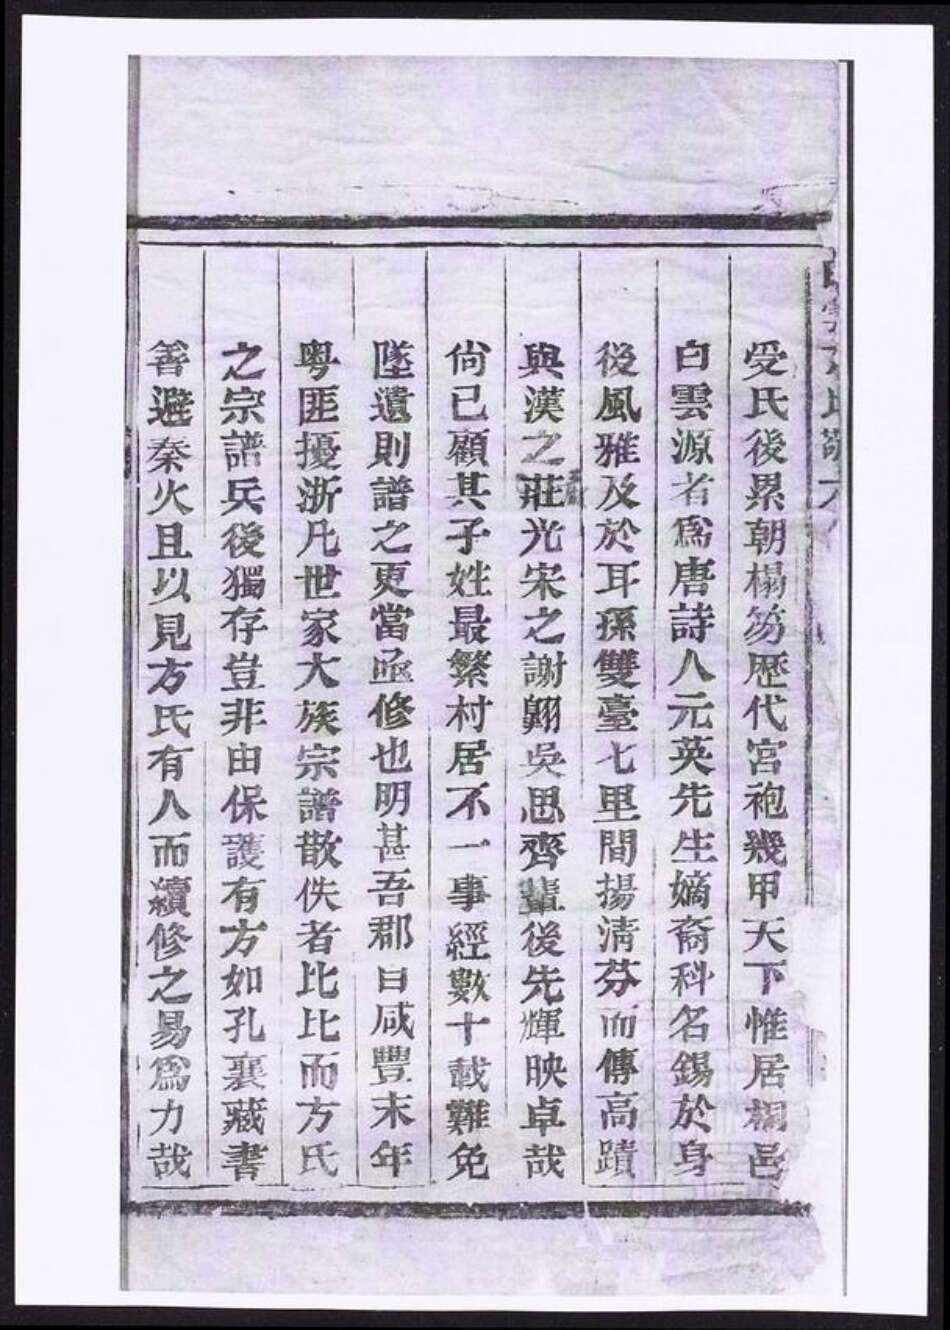 受氏後累朝榻笏歷代宮袍幾甲天下惟居桐邑
白雲源者爲唐詩人元英先生嫡裔科名錫於身
後風雅及於耳孫雙臺七里間揚清芬而傳高蹟
與漢之莊光宋之謝翺吳思齊輩後先輝映卓哉
尙已顧其子姓最繁村居不一事經數十載難免
墜遺則譜之更當亟修也明甚吾郡自咸豐末年
粤匪擾浙凡世家大族宗譜散佚者比比而方氏
之宗譜兵後獨存豈非由保護有方如孔襄藏書
善避秦火且以見方氏有人而續修之易爲力哉